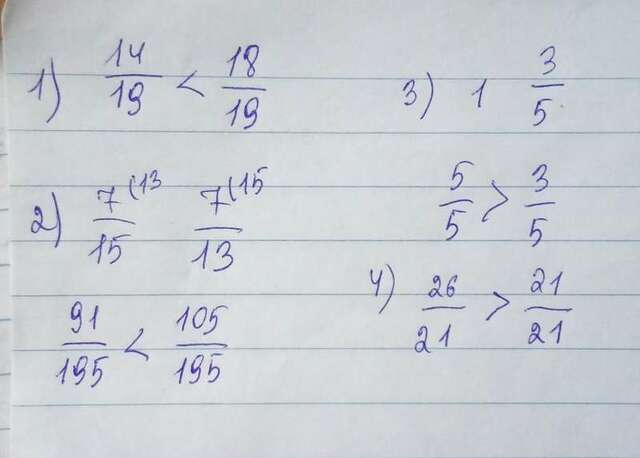 1) 14/19 < 18/19
2) 7(13/15 7(15/13
91/195 < 105/195
3) 1 3/5
5/5 > 3/5
4) 26/21 > 21/21